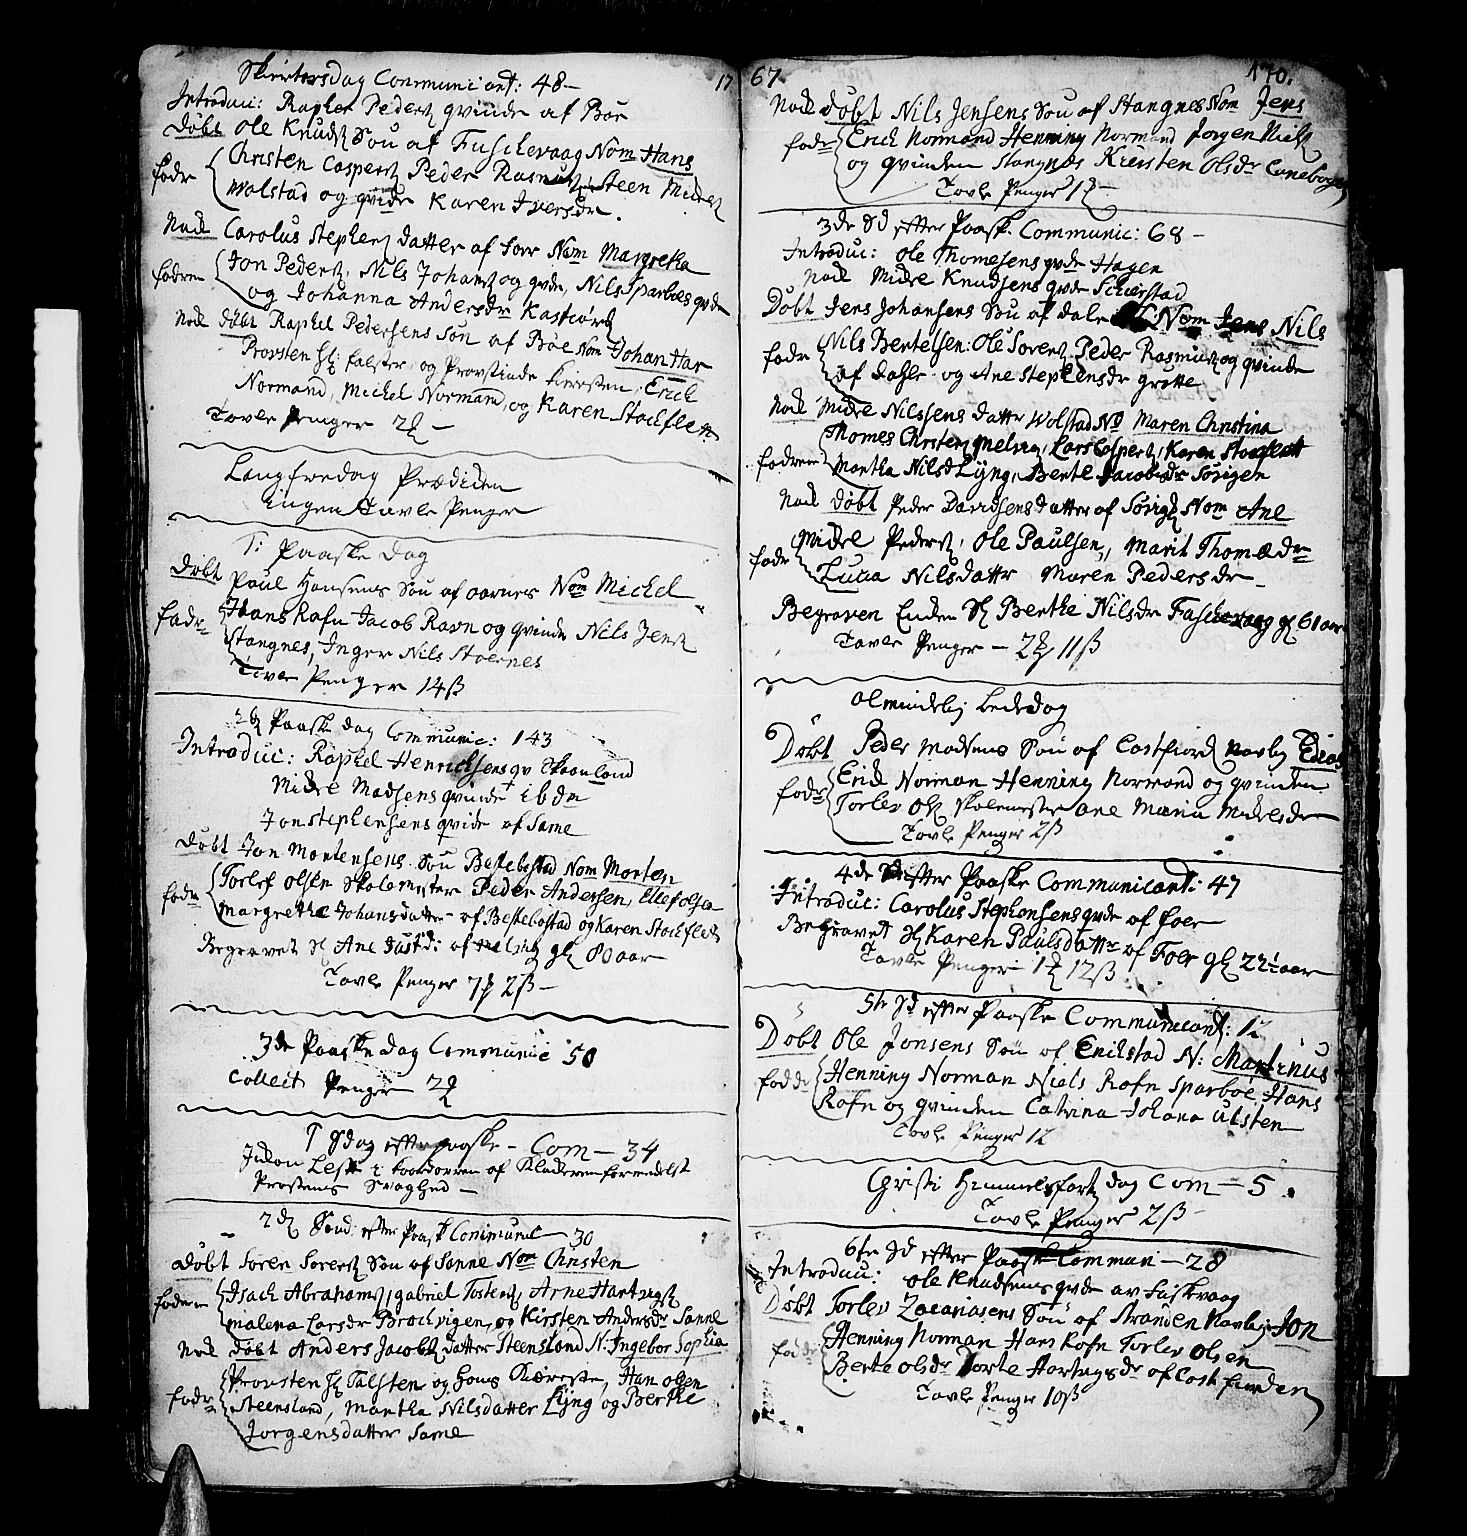 Skiertorsdag Communicant: 48 –
Introduc: Raphel Peders qvinde af Böe
Döbt Ole Knuds Sön af Fuschevaag Nom Hans
fadr Christen Caspers Peder Rasmus Steen Mickels
Wolstad og qvide Karen Iversdr.
Nock Carolus Stephens datter af Foer Nom Margretha
faderne Jon Peders, Nils Johans og qvde, Nils Sparboes qvde
og Johanna Andersdr
Nock döbt Raphel Pedersens Sön af Böe Nom Johan Har
Provsten Hr: falster og Provstinde Kiersten, Erick
Normand, Michel Normand, og Karen Stockfleth
Tavle Penger 2
Langfredag Prædicken
ingen Tavle Penger
1: Paaske dag
Döbt Paul Hansens Sön af aarnes Nom Michel
fadr Hans Rafn Jacob Ravn og qvinde Nils Jens
Stangnes, Inger Nils Stoernes
Tavle Penger 14 ß
2 Paaske dag Communic: 143
Introduc: Raphel Henrichsens qv Skaanland
Mickel Madsens qvinde ibdn
Jon Stephensens qvide af Same
Döbt Jon Mortensens Sön Bestebostad Nom Morten
fadr Torlef Olsen Skolemester Peder Andersen, Ellef olsen
Margrethe Johansdatter af Bestebostad og Karen Stockfleth
Begravet Ane Justd: af gl 80 aar
Tavle Penger 7 2 ß –
3de Paaske dag Communic 50
Collect Penger 2
1 Sdag effter paaske – Com – 34
Lest i koordøren af Klockeren formedelst
Prostens Svaghed –
2d Sönd: efter Paask Communic 30
Döbt Sören Sörens Sön af Sanne Nom Christen
faderne Isach Abrahams, gabriel Tostens, Arne Hartvigs
malena Larsdr Brochvigen, og Kirsten Andersdr Sanne
Nock döbt Anders Jacobs datter Steensland N: Ingebor Sophia
fadr Provsten Hr Falsten og hans Kiereste, Han olsen
Steensland, Martha Nilsdatter Lÿng og Berthe
Jorgensdatter Same
17
67
170.
Nock döbt Nils Jensens Sön af Stangnes Nom Jens
fadr Erick Normand Henning Normand Jorgen Niels
og qvinden Stangnes Kiersten Olsdr
Tavle Penger 1
3de Sd effter Paaske Communic: 68 –
Introduc: Ole Thomesens qvde Hagen
Nock Mickel Knudsens qvde
Döbt Jens Johansens Sön af dale Nom Jens Nils
fadr Nils Bertelsen: Ole Sorens Peder Rasmus og qvinde
af dahle og Ane Stephensdr grötte
Nock Mickel Nilssens dattr Wolstad No Maren Christina
faderne Thomes Christens, Lars Caspers, Karen
Martha Nilsd Lÿng, Berte Jacobsdr Sörigen
Nock döbt Peder Davidsens datter af Sörig Nom Ane
fadr Mickel Peders, Ole Paulsen, Marit Thomædr
Lucia Nilsdattr Maren Pedersdr –
Begraven Encken Sl Berthe Nilsdr Fuschevaag gl 61 aar
Tavle Penger – 2 11 ß
Olmindelig bededag
Döbt Peder Madsens Sön af Castfiord navlig
fadr Erick Norman Henning Normand og qvinden
Torlev Ols Skolemester Ane Maria Mickelsdr
Tavle Penger 2 ß
4de Sd effter Paaske Communicant: 47
Introduc: Carolus Stephensens qvde af foer
Begravet Karen Paulsdattr af Foer gl 22½ aar
Tavle Penger 1 12 ß
5te Sd effter Paaske Communicant: 12
Döbt Ole Jonsens Sön af Erickstad N: Martinus
fadde Henning Norman Niels Rafn Sparboe, Hans
Rafn og qvinden Catrina Johana Ulsten
Tavle Penger 12
Christi Himmelsfarts dag Com – 5.
Tavle Penger 2 ß
6te Sd effter Paaske Commun – 28
Introduc: Ole Knudsens qvde av
Döbt Torlev Zacariasens Sön af Stranden Navlig Jon
fadde Henning Norman Hans Rofn Torlev Olsen
Berte olsdr Dorte Hartvigsdr af
Tavle Penger 10 ß